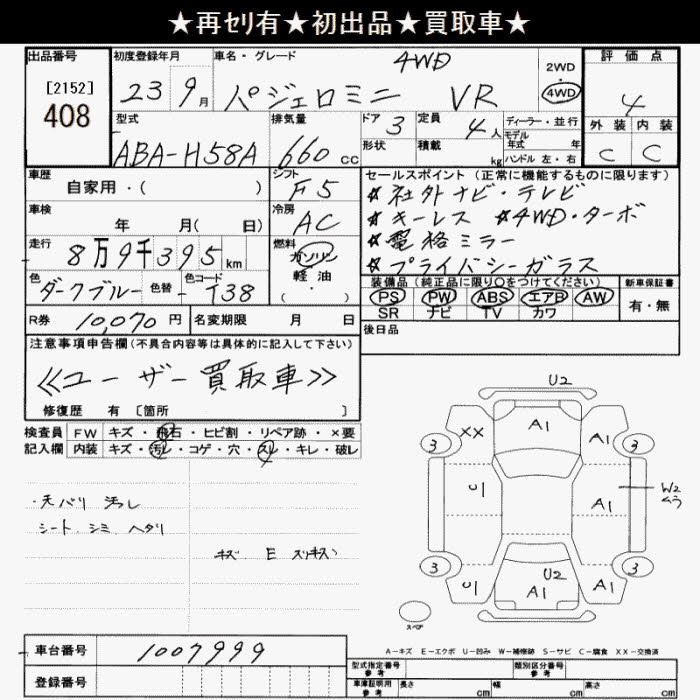 ★再ｾﾘ有★初出品★買取車★
出品番号 初度登録年月 車名・グレード 評価点
[2152] 408
23 9月 パジェロミニ VR 4WD
2WD・4WD
4
型式 排気量 ドア 3 定員 4人 ディーラー・並行 外装 内装
ABA-H58A 660cc 形状 積載 kg モデル年式 年 ハンドル 左・右 C C
車歴 シフト セールスポイント (正常に機能するものに限ります)
自家用・( ) F5 ☆社外ナビ・テレビ
車検 冷房 ☆キーレス ☆4WD・ターボ
年 月( 日) AC ☆電格ミラー
走行 燃料 ☆プライバシーガラス
8万9千395km ガソリン 軽油・( )
色 色替 色コード 装備品 (純正品に限り○をつけてください) 新車保証書
ダークブルー - T38 PS PW ABS エアB AW 有・無
SR ナビ TV カワ
R券 10,070円 名変期限 月 日 後日品
注意事項申告欄(不具合内容等は具体的に記入して下さい)
≪ユーザー買取車≫
修復歴 有 [箇所 ]
検査員 FW キズ・飛石・ヒビ割・リペア跡・×要
記入欄 内装 キズ・汚レ・コゲ・穴・スレ・キレ・破レ
・天バリ 汚レ
シート、シミ ヘタリ
キズ E スリキズ
U2
A1
XX A1
3 3
U1 A1 W2 ムラ
3 3
U1 U2 A1 A1
スペア
A-キズ E-エクボ U-凹み W-補修跡 S-サビ C-腐食 XX-交換済
車台番号 1007999
登録番号
型式指定番号 参考 類別区分番号 参考
車庫証明用 参考 長さ cm 幅 cm 高さ cm